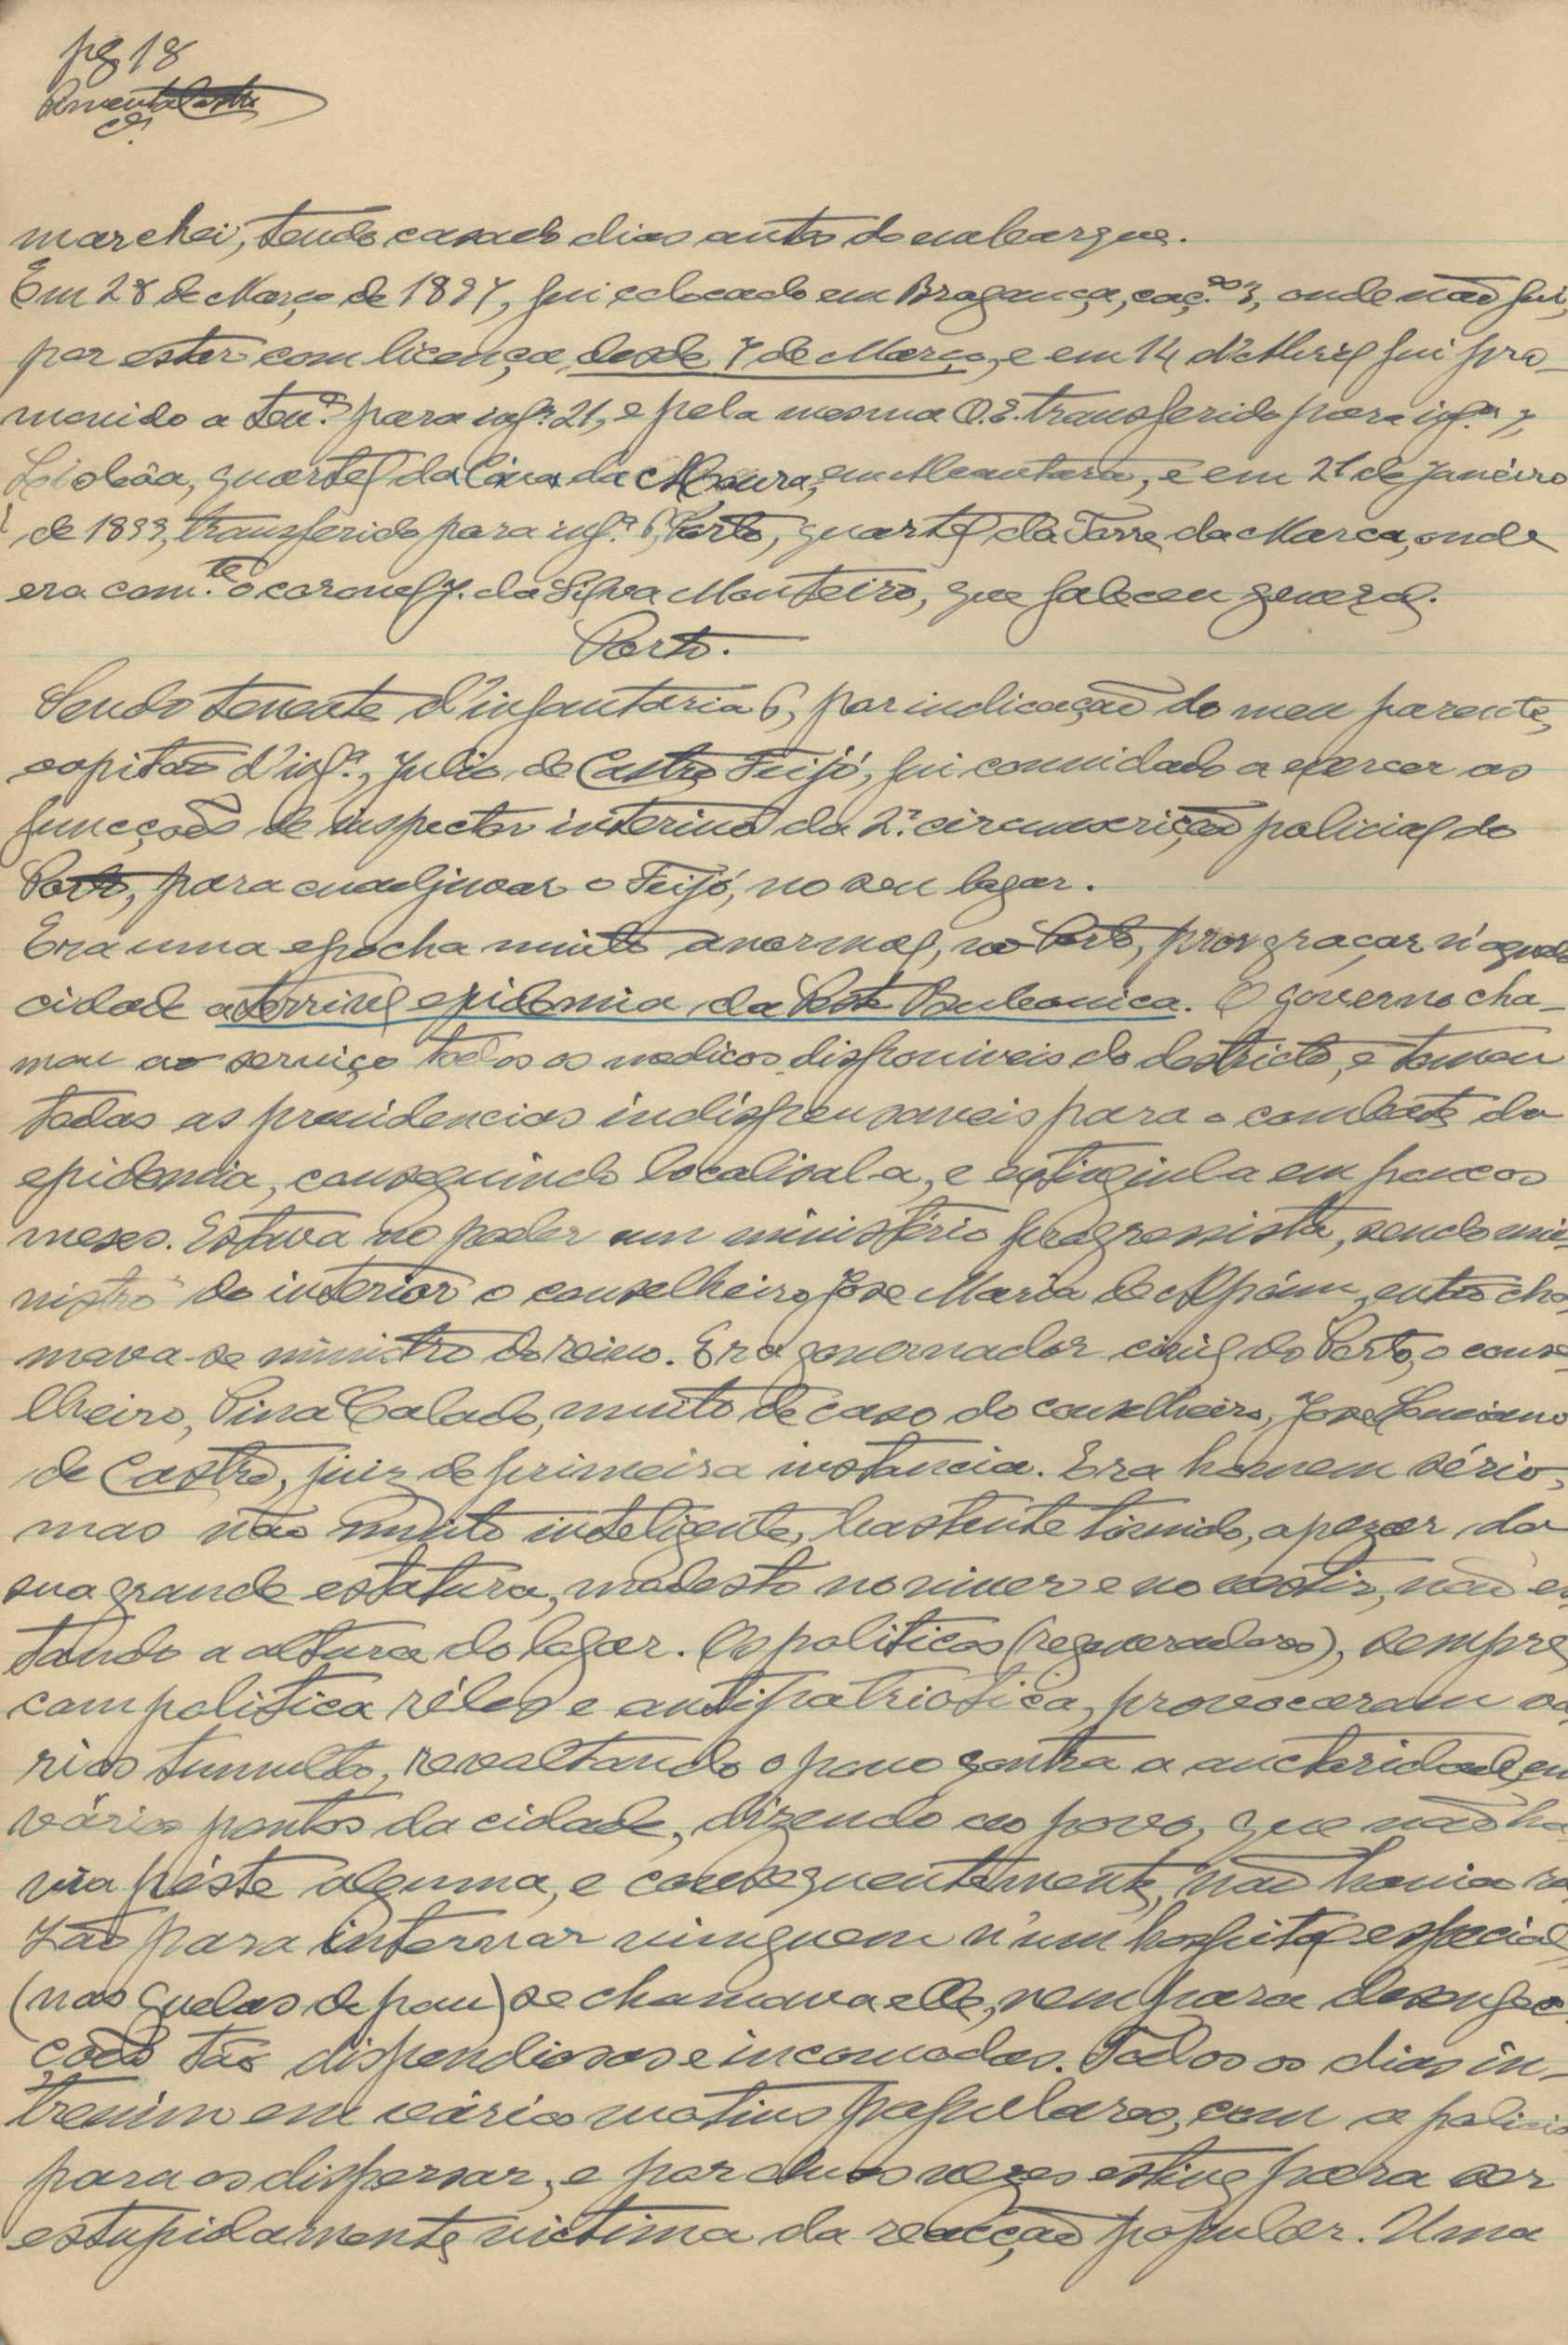 pg 18
Pimenta Castro
marchei, tendo casado dias antes do embarque.
Em 28 de Março de 1897, fui colocado em Bragança, caç.es 3, onde não fui,
por estar com licença desde 7 de Março, e em 14 d'Abril fui pro-
movido a ten.e para inf.a 21, e pela mesma O.E. transferido para inf.a 7,
Lisbôa, quartel da Cova da Moura, em Alcantara, e em 21 de Janeiro
de 1899, transferido para inf.a 6, Porto, quartel da Torre da Marca, onde
era com.te o coronel J. da Silva Monteiro, que faleceu general.
Porto.
Sendo tenente d'infantaria 6, por indicação do meu parente,
capitão d'inf.a, Julio de Castro Feijó, fui convidado a exercer as
funcções de inspector interino da 2.a circumscrição policial do
Porto, para coadjuvar o Feijó, no seu logar.
Era uma epocha muito anormal, no Porto, por graçar n'aquela
cidade a terrivel epidemia da Peste Bubonica. O governo cha-
mou ao serviço todos os medicos disponiveis do destricto, e tomou
todas as providencias indispensaveis para o combate da
epidemia, conseguindo localisal-a, e extinguil-a em poucos
meses. Estava no poder um ministério progressista, sendo mi-
nistro do interior o conselheiro José Maria de Alpoim, então cha
mava-se ministro do reino. Era governador civil do Porto, o conse
lheiro, Pina Calado, muito de casa do conselheiro, José Luciano
de Castro, juiz de primeira instancia. Era homem sério,
mas não muito inteligente, bastante timido, apezar da
sua grande estatura, modesto no viver e no vestir, não es
tando a altura do logar. Os politicos (regeneradores), sempre
com politica réles e antipatriotica, provocaram va
rios tumultos, revoltando o povo contra a auctoridade em
vários pontos da cidade, dizendo ao povo, que não ha
via péste alguma, e consequentemente, não havia ra
zão para internar ninguem n'um hospital especial,
(nas guelas de pau) se chamava elle, nem para desinfec
ções tão dispendiosas e incomodas. Todos os dias in-
trevim em vários motins populares, com a policia
para os dispersar, e por duas vezes estive para ser
estupidamente victima da reacção popular. Uma